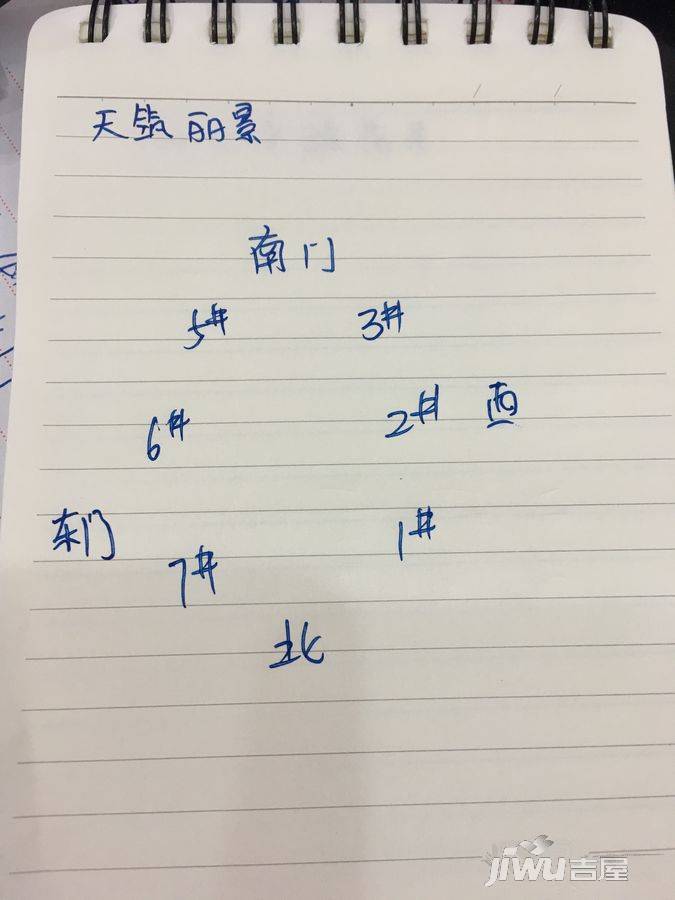 天筑丽景
南门
5# 3#
6# 2# 西
东门 1#
7#
北
JIWU吉屋